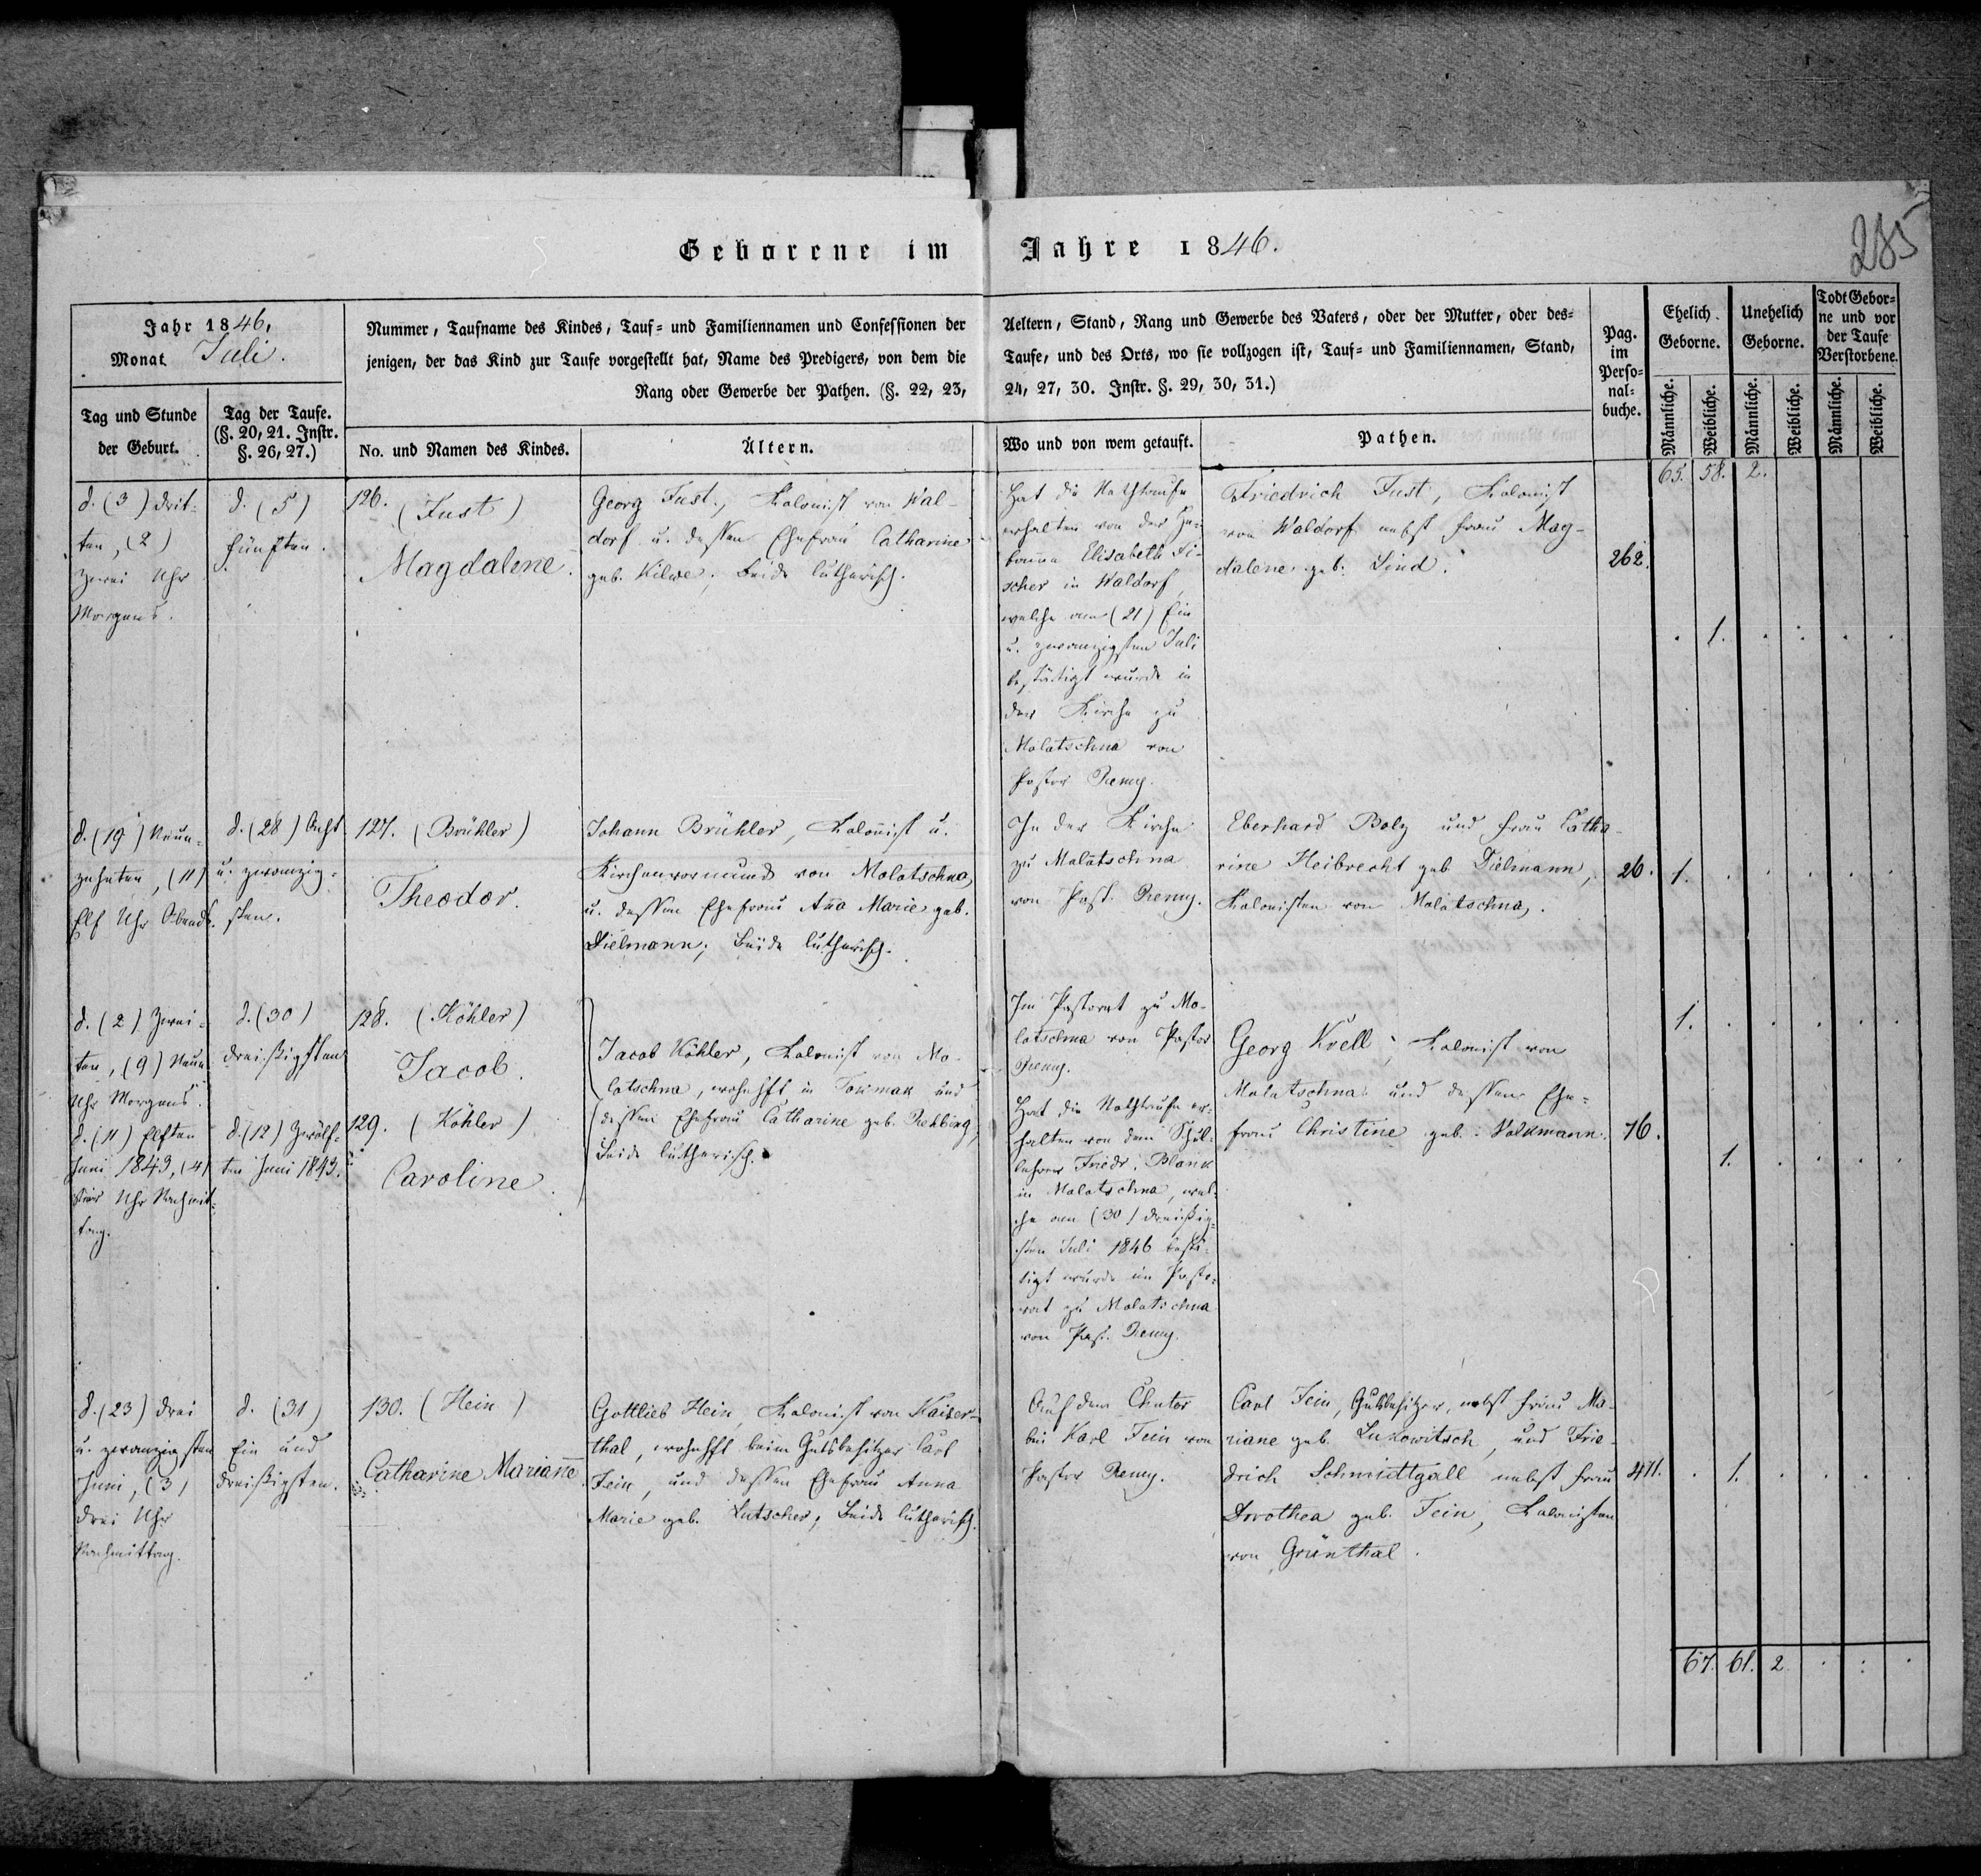 Geborene im Jahre 1846.
285
Jahr 1846,
Monat Juli.
Tag und Stunde
der Geburt.
Tag der Taufe.
(§. 20, 21. Instr.
§. 26, 27.)
Nummer, Taufname des Kindes, Tauf- und Familiennamen und Confessionen der Aeltern, Stand, Rang und Gewerbe des Vaters, oder der Mutter, oder des-
jenigen, der das Kind zur Taufe vorgestellt hat, Name des Predigers, von dem die Taufe, und des Orts, wo sie vollzogen ist, Tauf- und Familiennamen, Stand,
Rang oder Gewerbe der Pathen. (§. 22, 23, 24, 27, 30. Instr. §. 29, 30, 31.)
No. und Namen des Kindes.
Ältern.
Wo und von wem getauft.
Pathen.
Pag.
im
Perso-
nal-
buche.
Ehelich
Geborne.
Unehelich
Geborne.
Todt Gebor-
ne und vor
der Taufe
Verstorbene.
Männliche.
Weibliche.
Männliche.
Weibliche.
Männliche.
Weibliche.
65. 58. 2.
d. (3) drit-
ten, (2)
zwei Uhr
Morgens.
d. (5)
fünften.
126. (Fust)
Magdalene.
Georg Fust, Kolonist von Wal-
dorf u. dessen Ehefrau Catharine
geb. Kilwe; beide lutherisch.
Hat die Nothtaufe
erhalten von der He-
bamme Elisabeth Fi-
scher in Waldorf,
welche am (21) Ein
u. zwanzigsten Juli
bestätigt wurde in
der Kirche zu
Molotschna von
Pastor
Friedrich Fust, Kolonist
von Waldorf nebst Frau Mag-
dalene geb. Lind.
262.
1.
d. (19) Neun-
zehnten, (11)
Elf Uhr Abends.
d. (28) Acht
u. zwanzig-
sten.
127. (Brühler)
Theodor.
Johann Brühler, Kolonist u.
Kirchenvormund von Molotschna,
u. dessen Ehefrau Anna Marie geb.
Dielmann; beide lutherisch.
In der Kirche
zu Molotschna
von Past.
Eberhard Bolz und Frau Catha-
rine Heibrecht geb. Dielmann,
Kolonisten von Molotschna.
26.
1.
d. (2) Zwei-
ten, (9) Neun
Uhr Morgens.
d. (30)
dreißigsten
128. (Köhler)
Jacob.
Jacob Köhler, Kolonist von Mo-
lotschna, wohnhft in Tokmak und
dessen Ehefrau Catharine geb. Rehbing,
beide lutherisch.
Im Pastorat zu Mo-
lotschna von Pastor
Georg Krell, Kolonist von
Molotschna und dessen Ehe-
frau Christine geb. Volkmann.
76.
1.
d. (11) Elften
Juni 1843, (4)
vier Uhr Nachmit-
tag.
d. (12) Zwölf-
ten Juni 1843.
129. (Köhler)
Caroline.
Hat die Nothtaufe er-
halten von dem Schul-
lehrer Friedr. Blank
in Molotschna, wel-
che am (30) dreißig-
sten Juli 1846 bestä-
tigt wurde im Pasto-
rat zu Molotschna
von Past.
1.
d. (23) drei
u. zwanzigsten
Juni, (3)
drei Uhr
Nachmittag.
d. (31)
Ein und
dreißigsten.
130. (Hein)
Catharine Marianne
Gottlieb Hein, Kolonist von Kaiser-
thal, wohnhft beim Gutsbesitzer Carl
Fein, und dessen Ehefrau Anna
Marie geb. Lutscher, beide lutherisch.
Auf dem Chutor
bei Karl Fein von
Pastor
Carl Fein, Gutsbesitzer, nebst Frau Ma-
riane geb. Lukowitsch, und Frie-
drich Schmidtgall nebst Frau
Dorothea geb. Fein, Kolonisten
von Grünthal.
411.
1.
67. 61. 2